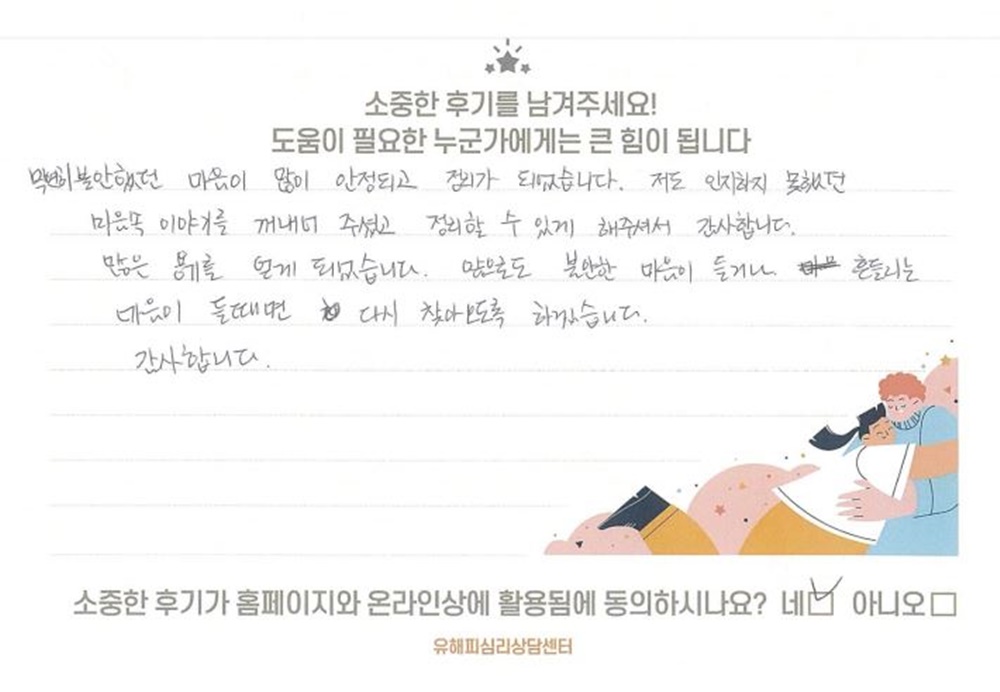 소중한 후기를 남겨주세요!
도움이 필요한 누군가에게는 큰 힘이 됩니다
막연히 불안했던 마음이 많이 안정되고 정리가 되었습니다. 저도 인지하지 못했던
마음속 이야기를 꺼내어 주셨고 정리할 수 있게 해주셔서 감사합니다.
많은 용기를 얻게 되었습니다. 앞으로도 불안한 마음이 들거나 흔들리는
마음이 들때면 다시 찾아오도록 하겠습니다.
감사합니다.
소중한 후기가 홈페이지와 온라인상에 활용됨에 동의하시나요? 네 아니오
유해피심리상담센터